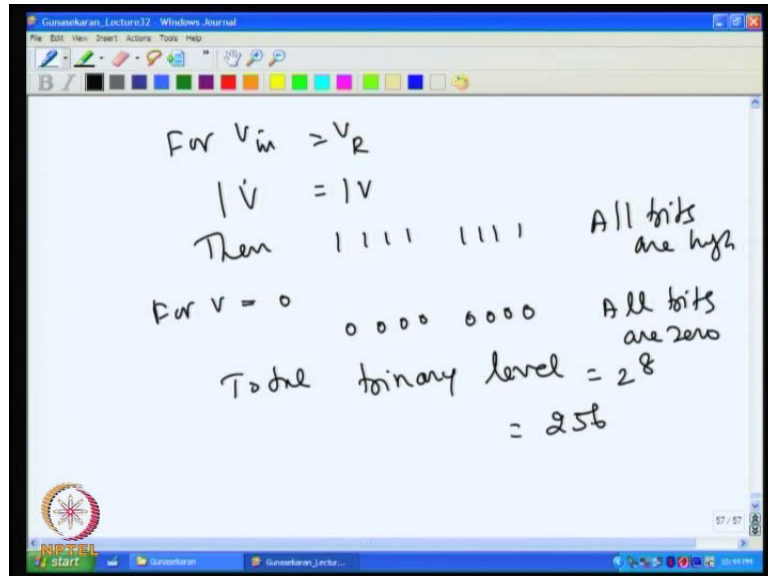 Gunasekaran_Lecture32 - Windows Journal
File Edit View Insert Actions Tools Help
B I
For Vin = VR
1V = 1V
Then 1111 1111 All bits are high
For V = 0
0000 0000 All bits are zero
Total binary level = 2^8
= 256
57 / 57
NPTEL
start Gunasekaran Gunasekaran_Lectur... 10:44 PM